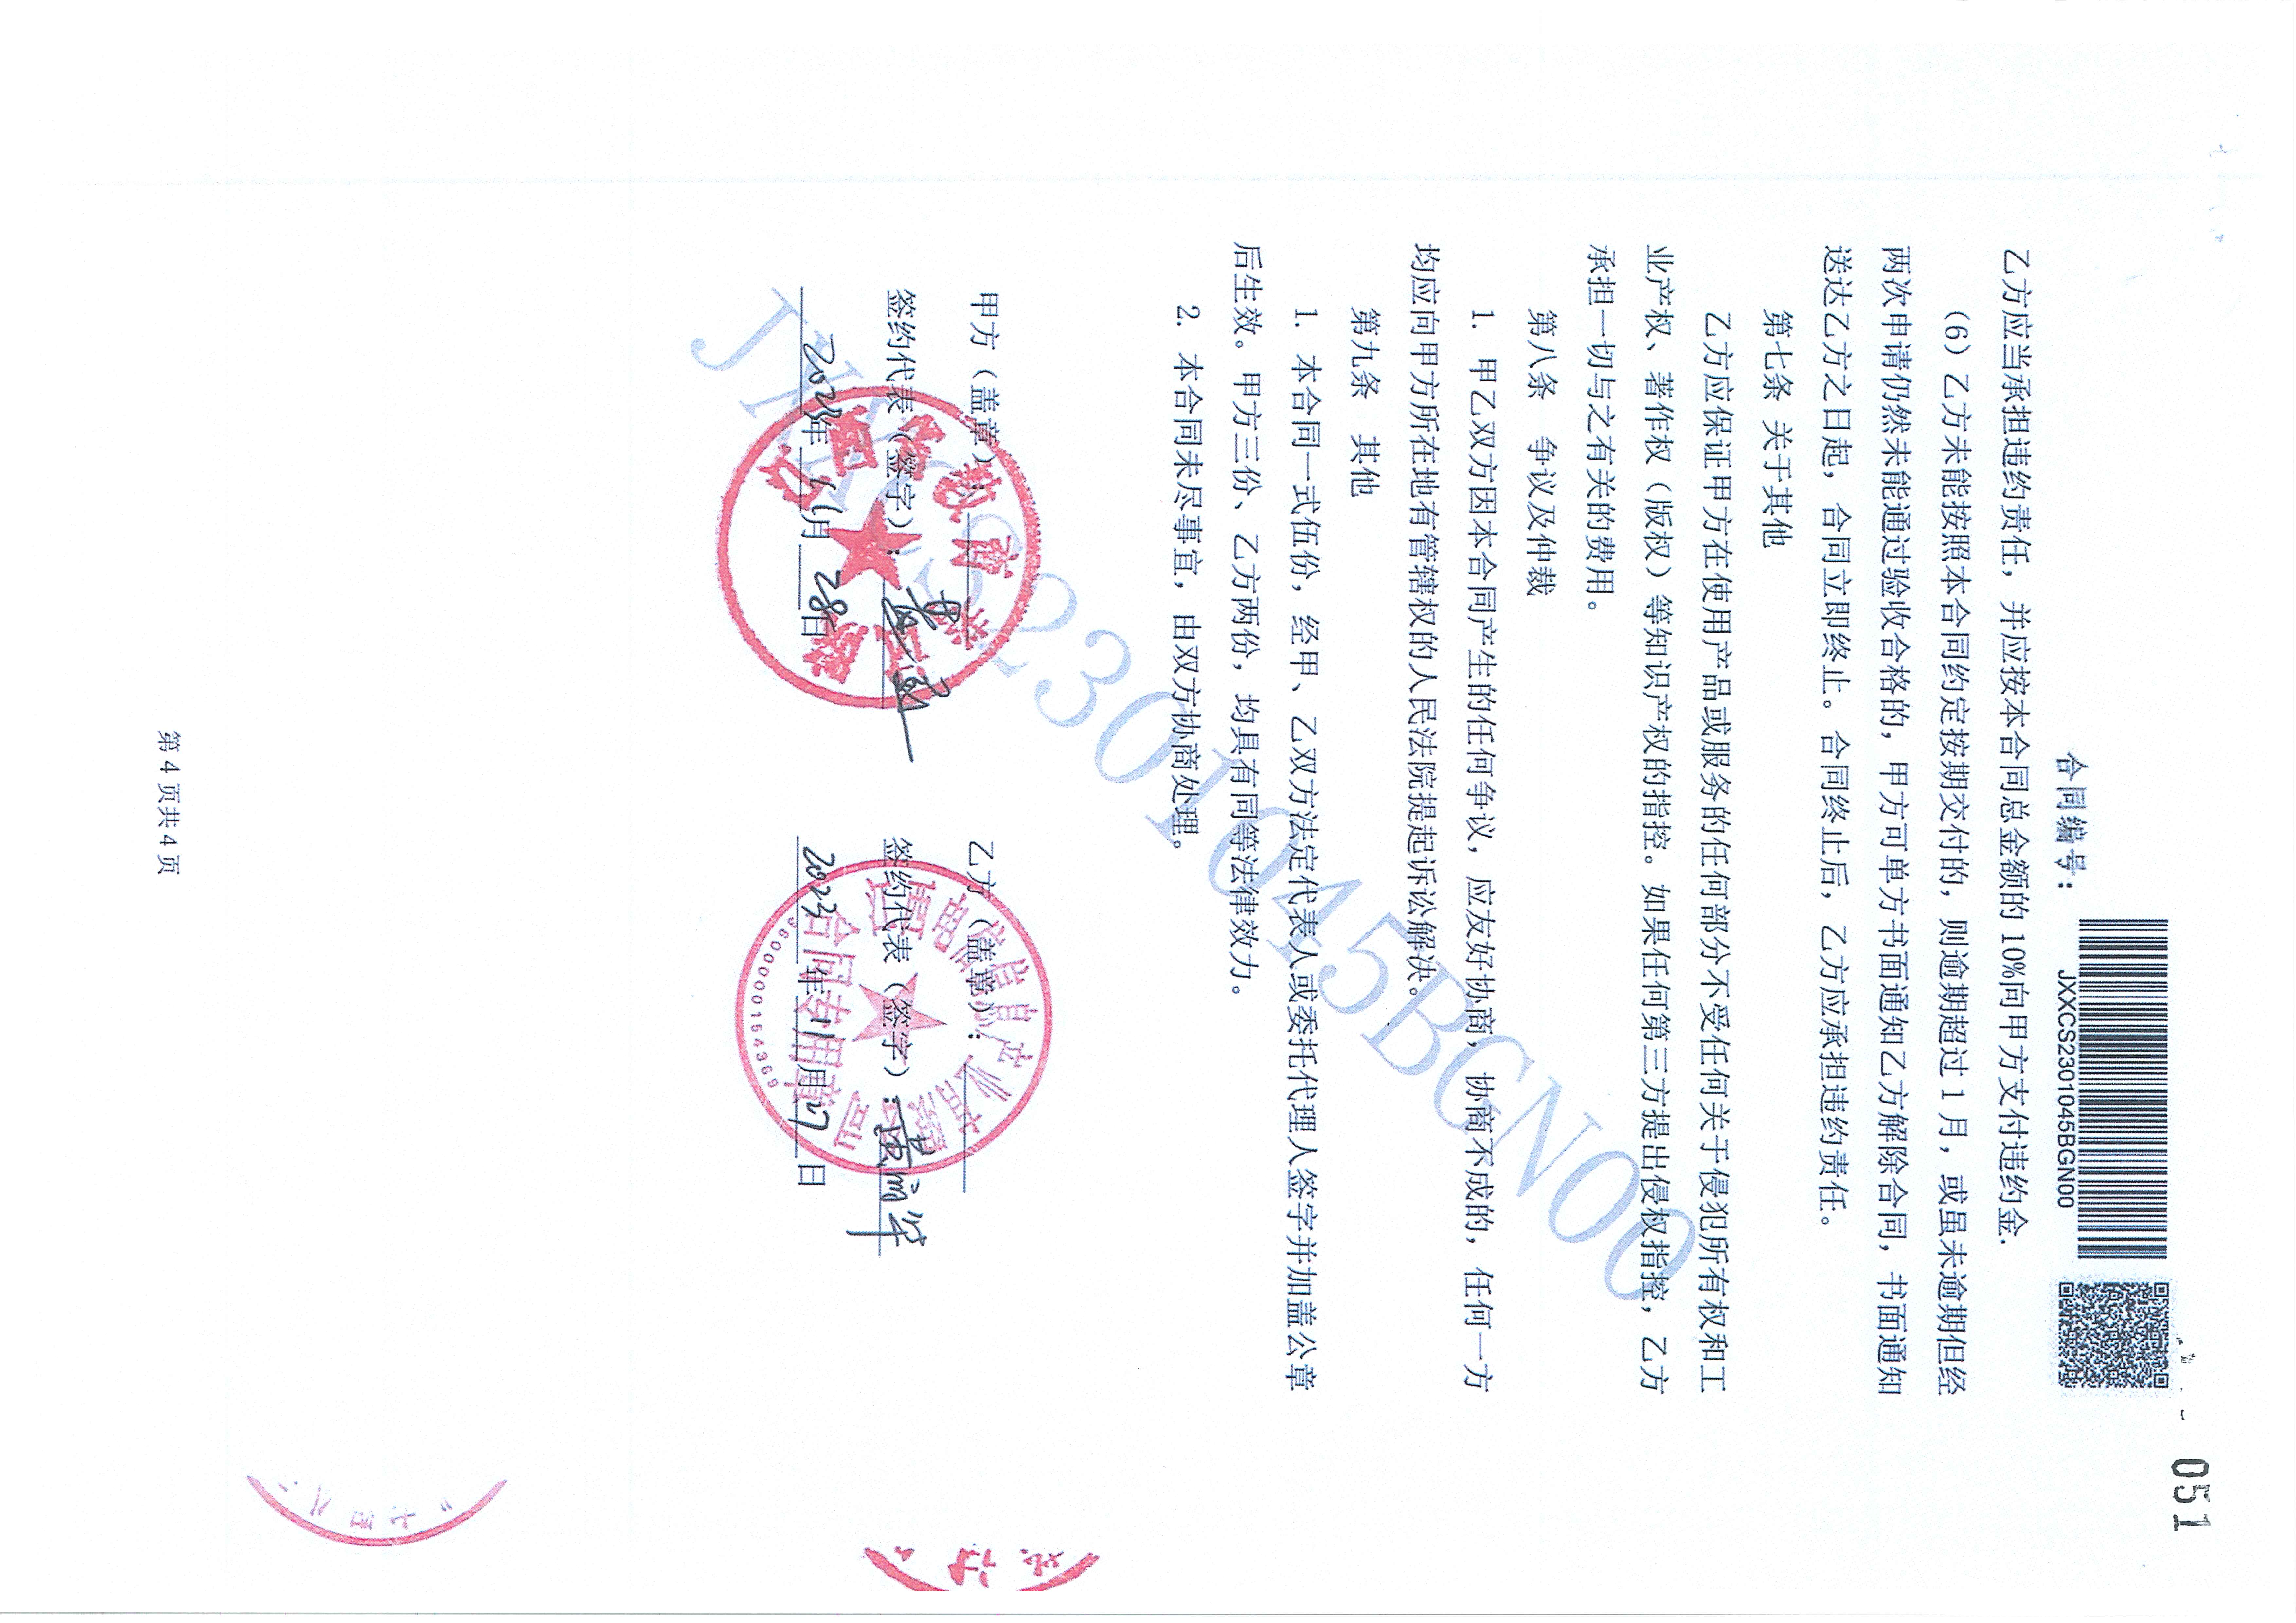 051
合同编号：
JXXCS2301045BGN00
乙方应当承担违约责任，并应按本合同总金额的 10%向甲方支付违约金.
（6）乙方未能按照本合同约定按期交付的，则逾期超过 1 月，或虽未逾期但经
两次申请仍然未能通过验收合格的，甲方可单方书面通知乙方解除合同，书面通知
送达乙方之日起，合同立即终止。合同终止后，乙方应承担违约责任。
第七条 关于其他
乙方应保证甲方在使用产品或服务的任何部分不受任何关于侵犯所有权和工
业产权、著作权（版权）等知识产权的指控。如果任何第三方提出侵权指控，乙方
承担一切与之有关的费用。
第八条 争议及仲裁
1. 甲乙双方因本合同产生的任何争议，应友好协商，协商不成的，任何一方
均应向甲方所在地有管辖权的人民法院提起诉讼解决。
第九条 其他
1. 本合同一式伍份，经甲、乙双方法定代表人或委托代理人签字并加盖公章
后生效。甲方三份、乙方两份，均具有同等法律效力。
2. 本合同未尽事宜，由双方协商处理。
甲方（盖章）： 乙方（盖章）：
签约代表（签字）： 签约代表（签字）：
年 月 28日 2023 年 11 月 27 日
合同专用章
JXXCS2301045BGN00
第 4 页共 4 页